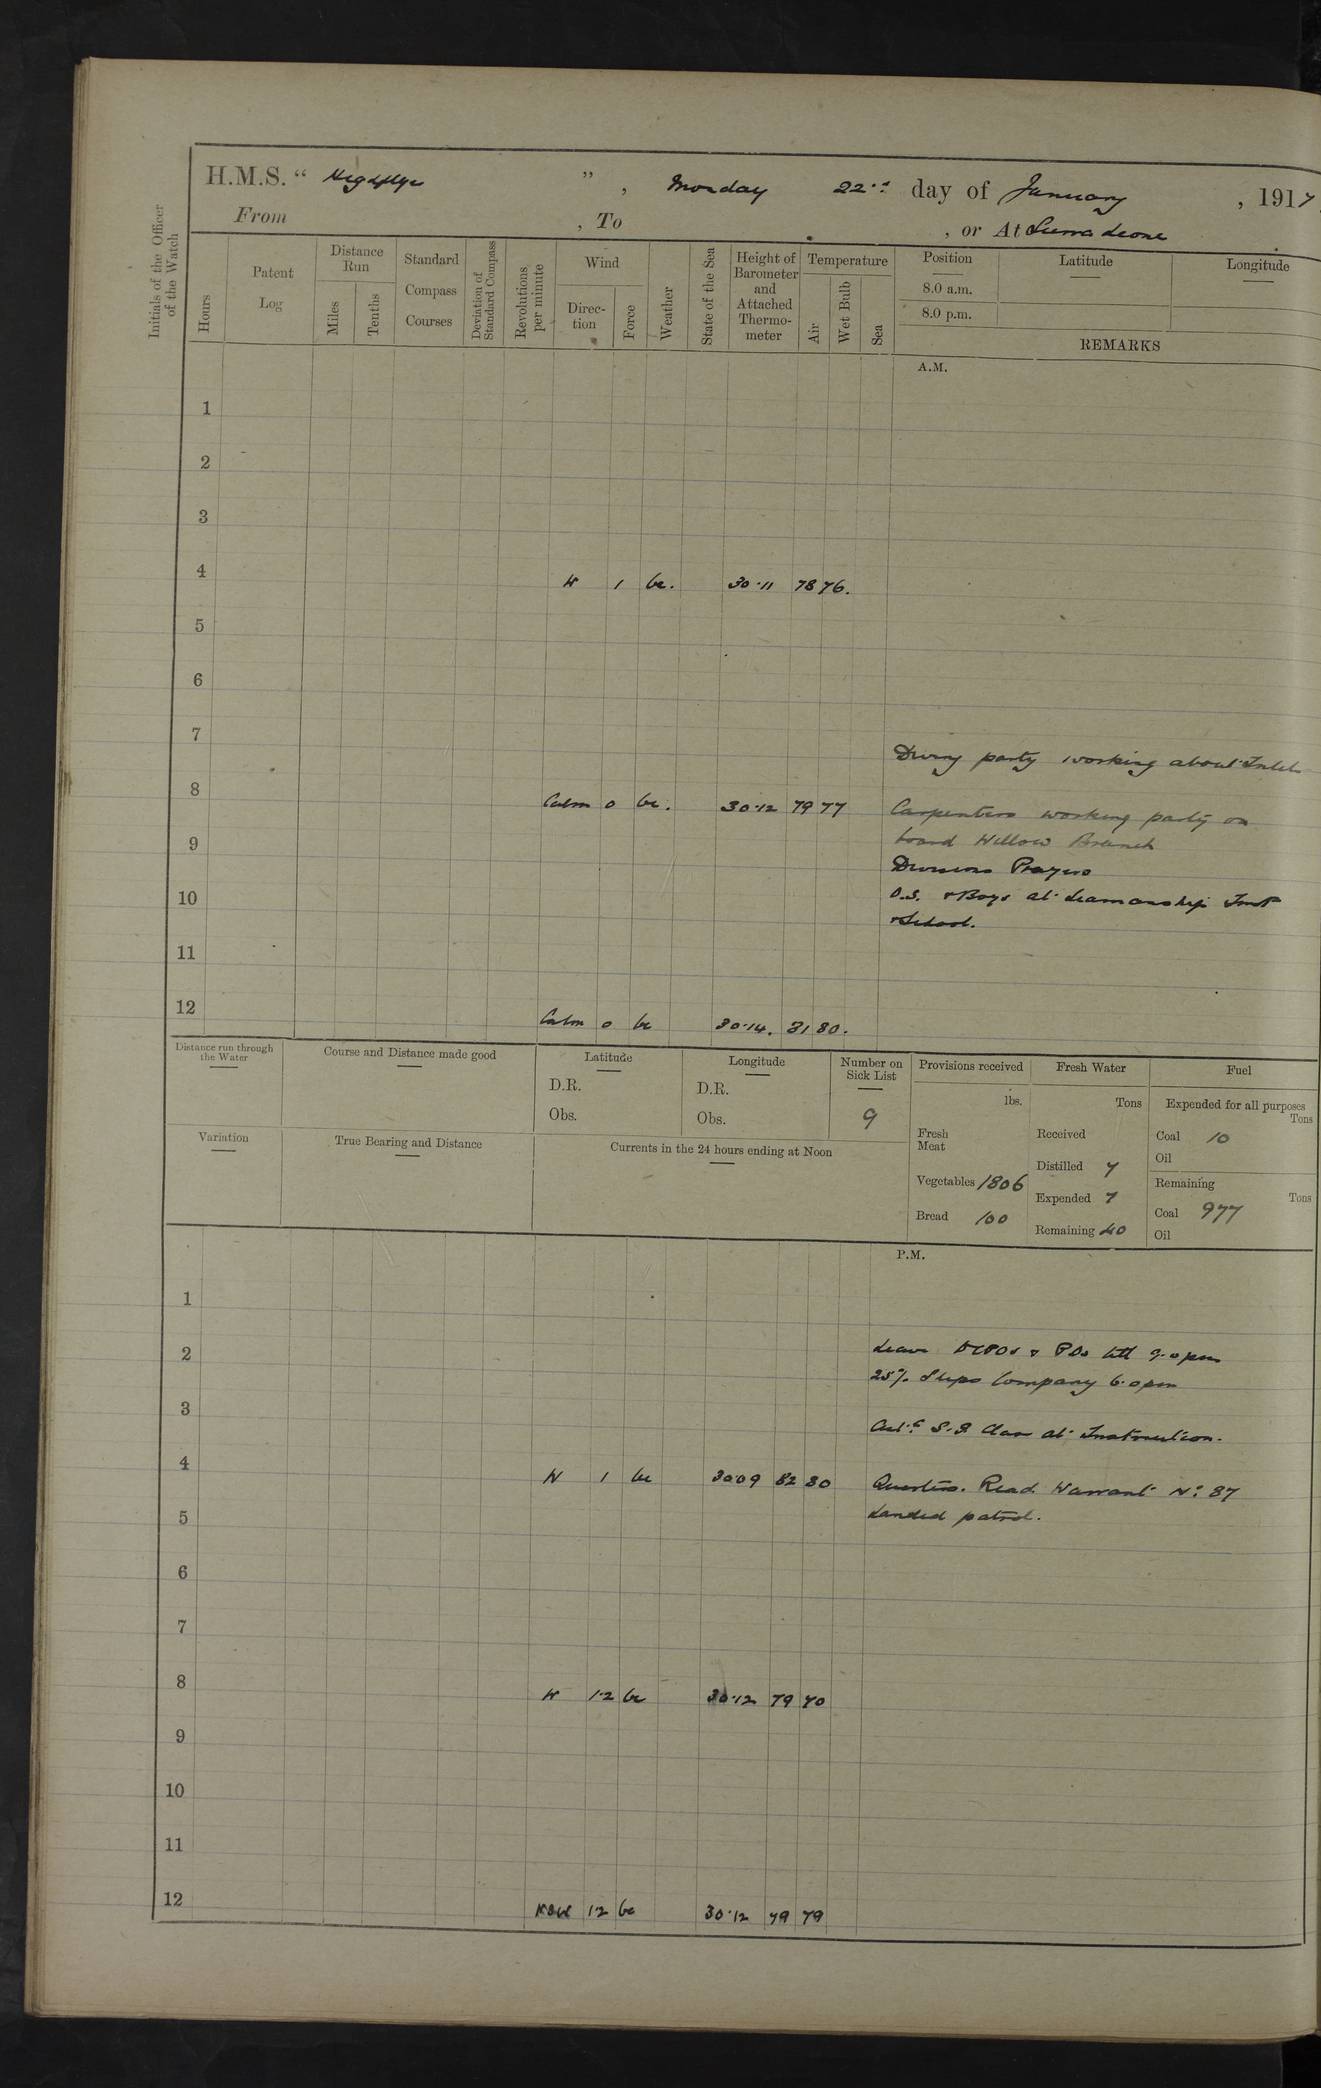 H.M.S. “ Highflyer ” , Monday 22nd day of January , 1917
From , To , or At Sierra Leone
Initials of the Officer of the Watch
Hours
Patent Log
Distance Run
Miles
Tenths
Standard Compass Courses
Deviation of Standard Compass
Revolutions per minute
Wind
Direction
Force
Weather
State of the Sea
Height of Barometer and Attached Thermometer
Temperature
Air
Wet Bulb
Sea
Position
8.0 a.m.
8.0 p.m.
Latitude
Longitude
REMARKS
A.M.
1
2
3
4 W 1 bc. 30·11 78 76.
5
6
7
Diving party working about Inlets
8 Calm 0 bc. 30·12 79 77 Carpenters working party on
board Willow Branch
9
Divisions Prayers
10 O.S. & Boys at Seamanship Inst
& School.
11
12 Calm 0 bc 30·14. 81 80.
Distance run through the Water
Course and Distance made good
Latitude
D.R.
Obs.
Longitude
D.R.
Obs.
Number on Sick List
9
Provisions received
lbs.
Fresh Meat
Vegetables 1806
Bread 100
Fresh Water
Tons
Received
Distilled 7
Expended 7
Remaining 40
Fuel
Expended for all purposes
Tons
Coal 10
Oil
Remaining
Tons
Coal 977
Oil
Variation
True Bearing and Distance
Currents in the 24 hours ending at Noon
P.M.
1
2 Leave & POs till 9·0 pm
25% Ships Company 6·0 pm
3
S.G. Class at Instruction.
4 W 1 bc 30·09 82 80 Quarters. Read Warrant No 87
5 Landed patrol.
6
7
8 W 1·2 bc 30·12 79 70
9
10
11
12 1·2 bc 30·12 79 79